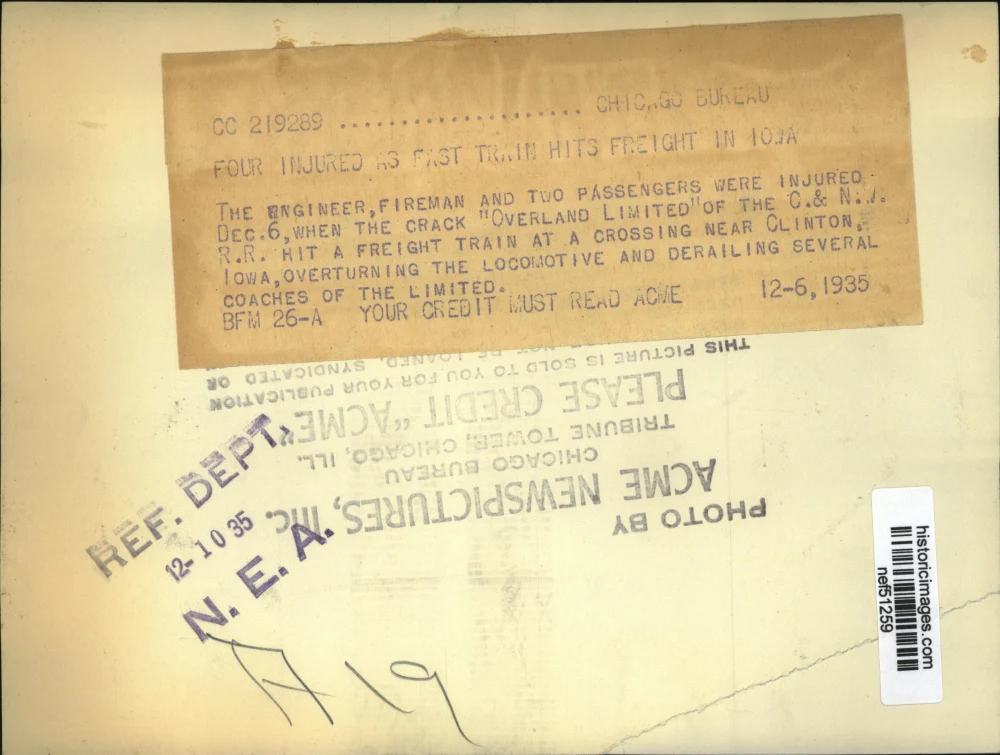 CC 219289 ..................... CHICAGO BUREAU
FOUR INJURED AS FAST TRAIN HITS FREIGHT IN IOWA
THE ENGINEER, FIREMAN AND TWO PASSENGERS WERE INJURED
DEC.6, WHEN THE CRACK "OVERLAND LIMITED" OF THE C.& N.W.
R.R. HIT A FREIGHT TRAIN AT A CROSSING NEAR CLINTON,
IOWA, OVERTURNING THE LOCOMOTIVE AND DERAILING SEVERAL
COACHES OF THE LIMITED.
BFM 26-A YOUR CREDIT MUST READ ACME 12-6, 1935
PHOTO BY
ACME NEWSPICTURES, INC.
CHICAGO BUREAU
TRIBUNE TOWER, CHICAGO, ILL.
PLEASE CREDIT "ACME"
THIS PICTURE IS SOLD TO YOU FOR YOUR PUBLICATION
NOT BE LOANED, SYNDICATED OR
REF. DEPT.
12-10 35
N. E. A.
A 19
historicimages.com
nef51259